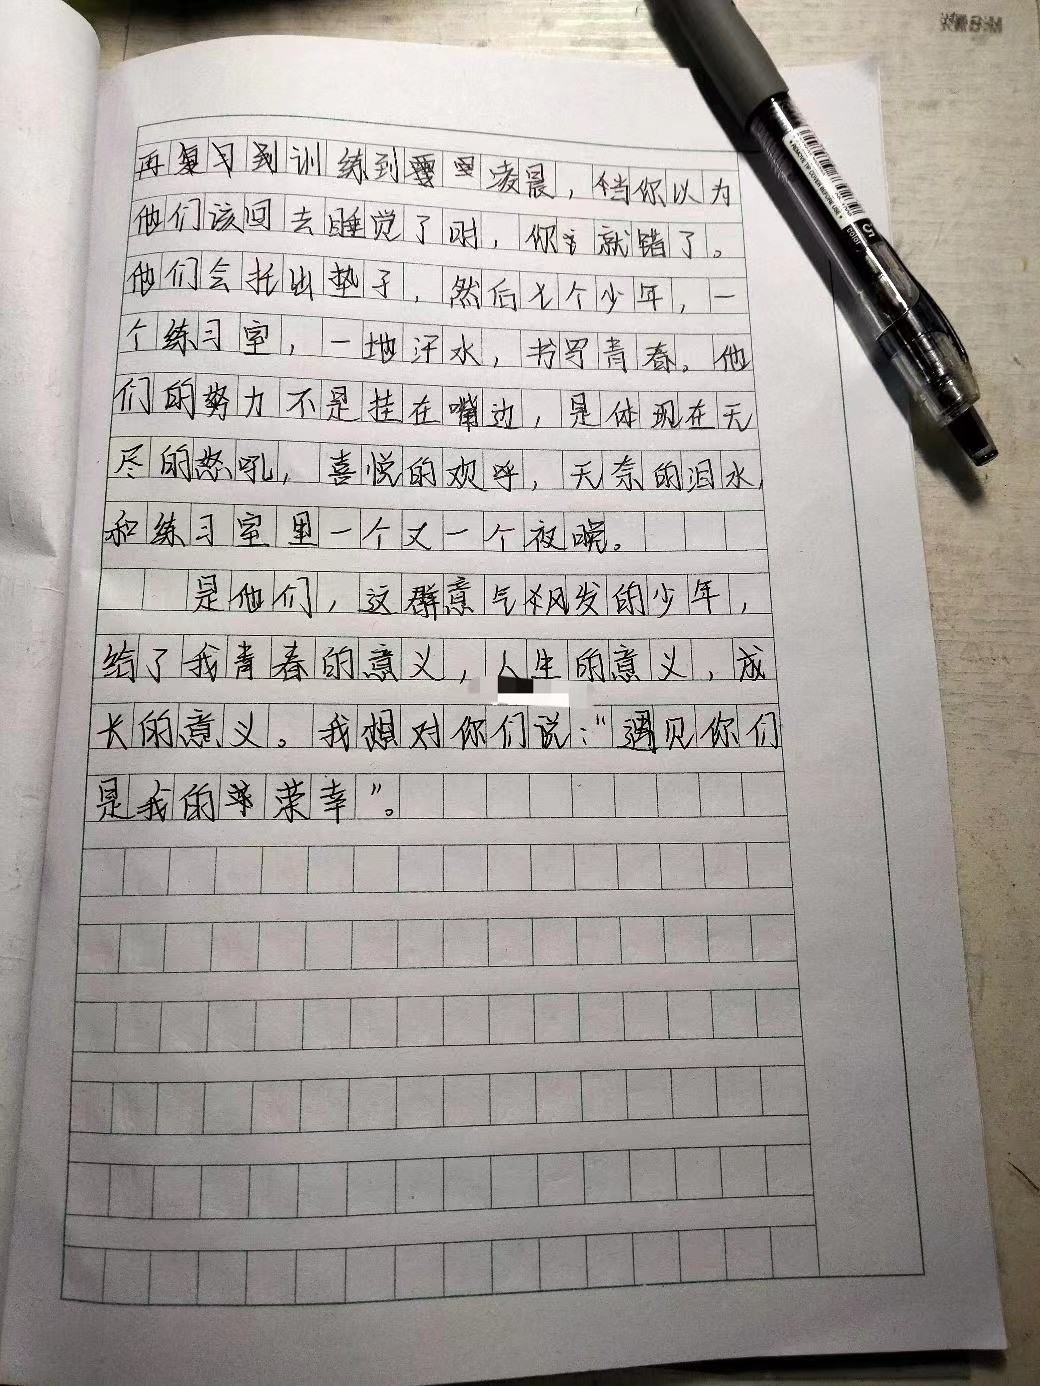 再复习到训练到凌晨，当你以为
他们该回去睡觉了时，你就错了。
他们会托出垫子，然后七个少年，一
个练习室，一地汗水，书写青春。他
们的努力不是挂在嘴边，是体现在无
尽的怒吼，喜悦的欢呼，无奈的泪水，
和练习室里一个又一个夜晚。
是他们，这群意气风发的少年，
给了我青春的意义，人生的意义，成
长的意义。我想对你们说："遇见你们
是我的荣幸"。